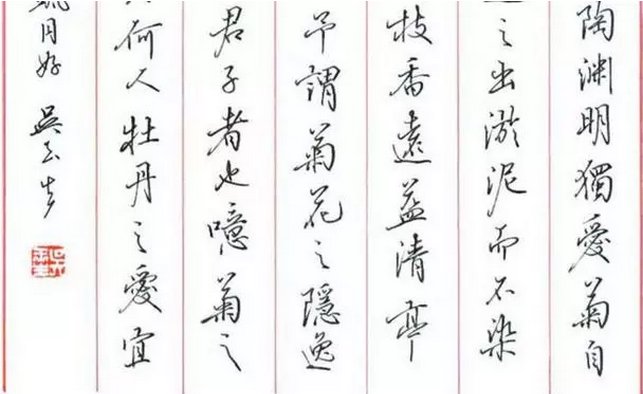 陶渊明獨愛菊自
之出淤泥而不染
枝香遠益清亭
予謂菊花之隱逸
君子者也噫菊之
何人牡丹之愛宜
月好 吳玉生